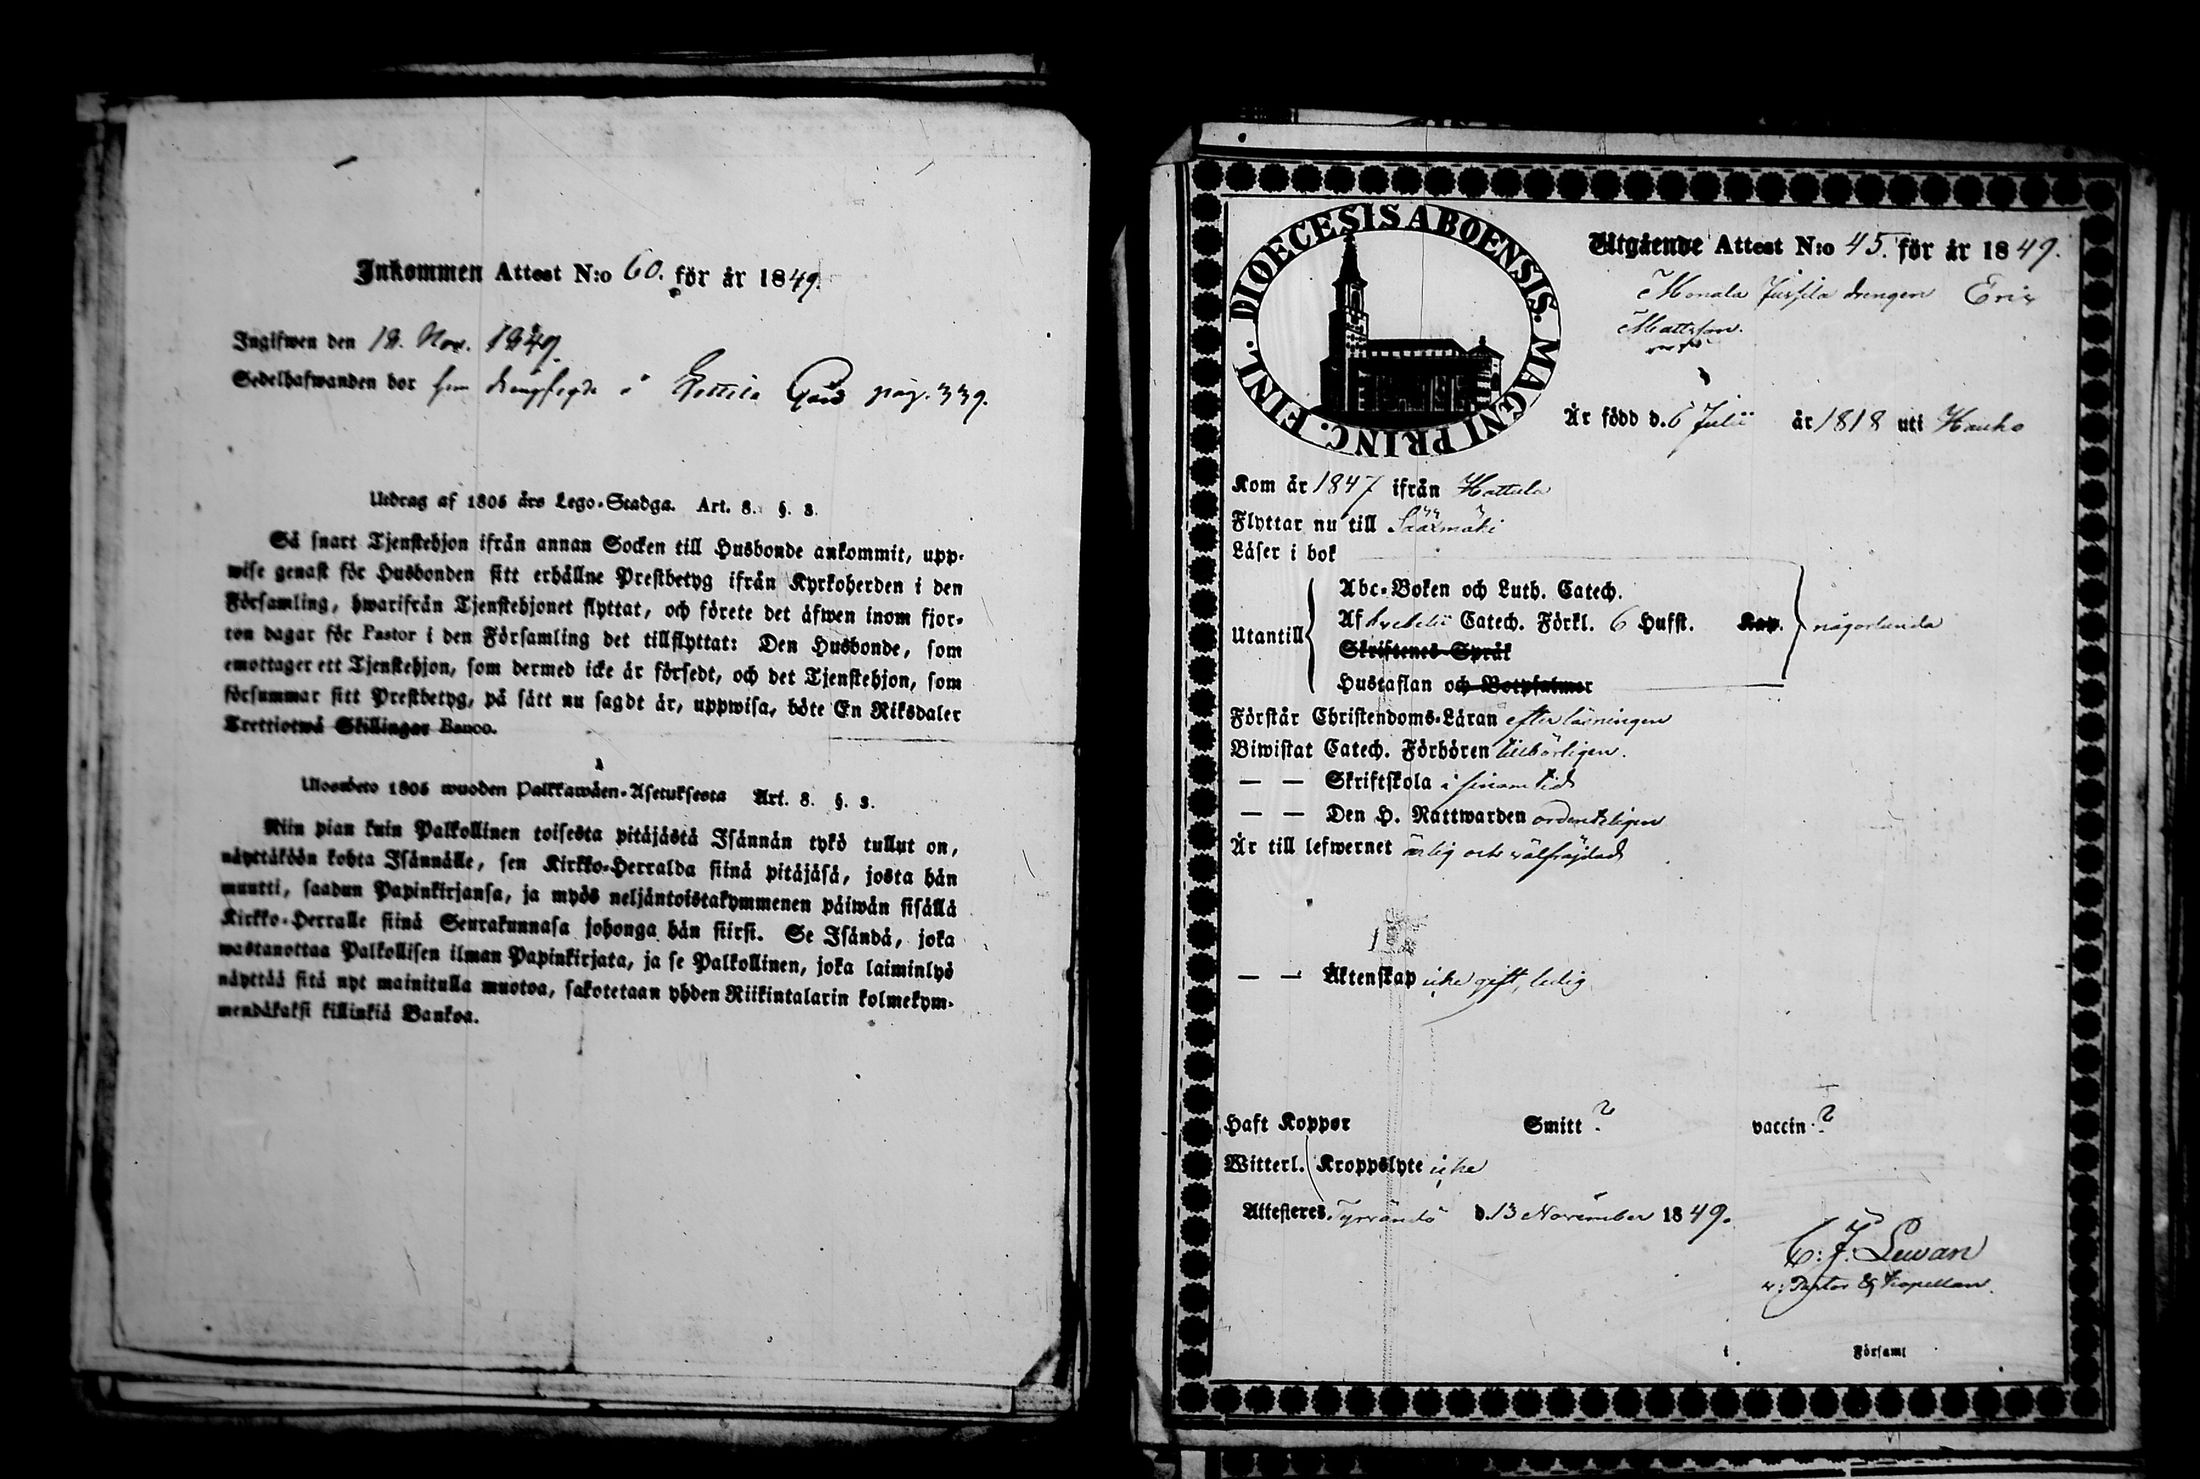 Inkommen Attest N:o 60. för år 1849.
Ingifwen den 18. Nov. 1849.
Sedelhafwanden bor som i Gård pag. 339.
Utdrag af 1805 års Lego-Stadga. Art. 8. §. 3.
Så snart Tjenstehjon ifrån annan Socken till Husbonde ankommit, upp-
wise genast för Husbonden sitt erhållne Prestbetyg ifrån Kyrkoherden i den
Församling, hwarifrån Tjenstehjonet flyttat, och förete det äfwen inom fjor-
ton dagar för Pastor i den Församling det tillflyttat: Den Husbonde, som
emottager ett Tjenstehjon, som dermed icke är försedt, och det Tjenstehjon, som
försummar sitt Prestbetyg, på sätt nu sagdt är, uppwisa, böte En Riksdaler
Trettiotwå Skillingar Banco.
Ulosweto 1805 wuoden Palkkawäen-Asetuksesta Art. 8. §. 3.
Niin pian kuin Palkollinen toisesta pitäjästä Isännän tykö tullut on,
näyttäköön kohta Isännälle, sen Kirkko-Herralda siinä pitäjäsä, josta hän
muutti, saadun Papinkirjansa, ja myös neljäntoistakymmenen päiwän sisällä
Kirkko-Herralle siinä Seurakunnasa johonga hän siirsi. Se Isändä, joka
wastanottaa Palkollisen ilman Papinkirjata, ja se Palkollinen, joka laiminlyö
näyttää sitä nyt mainitulla muotoa, sakotetaan yhden Riikintalarin kolmekym-
mendäkaksi killinkiä Bankoa.
DIOECESIS ABOENSIS. MAGNI PRINC. FINL.
Utgående Attest N:o 45. för år 1849.
Monala Jussila drengen Eric
Mattsson
Är född d. 6 Julii år 1818 uti Hauho
Kom år 1847 ifrån Hattula
Flyttar nu till Sääxmäki
Läser i bok
Abc-Boken och Luth. Catech.
Utantill Af Svebelii Catech. Förkl. 6 Hufst. Kap. någorlunda
Skriftenes Språk
Hustaflan och Botpsalmer
Förstår Christendoms-Läran efter läsningen
Biwistat Catech. Förhören tillbörligen.
— — Skriftskola i sinom tid
— — Den H. Nattwarden ordenteligen
Är till lefwernet ärlig och välfräjdad
— — Äktenskap icke gift, ledig
Haft Koppor Smitt ? vaccin. ?
Witterl. Kroppslyte icke
Attesteres Tyrvändö d. 13 November 1849.
C. J. Lewan
v: Pastor & Kapellan.
i Församl